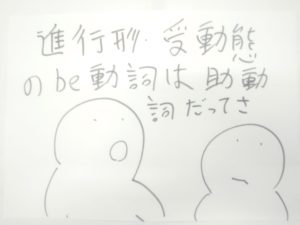 進行形・受動態
のbe動詞は助動
詞だってさ